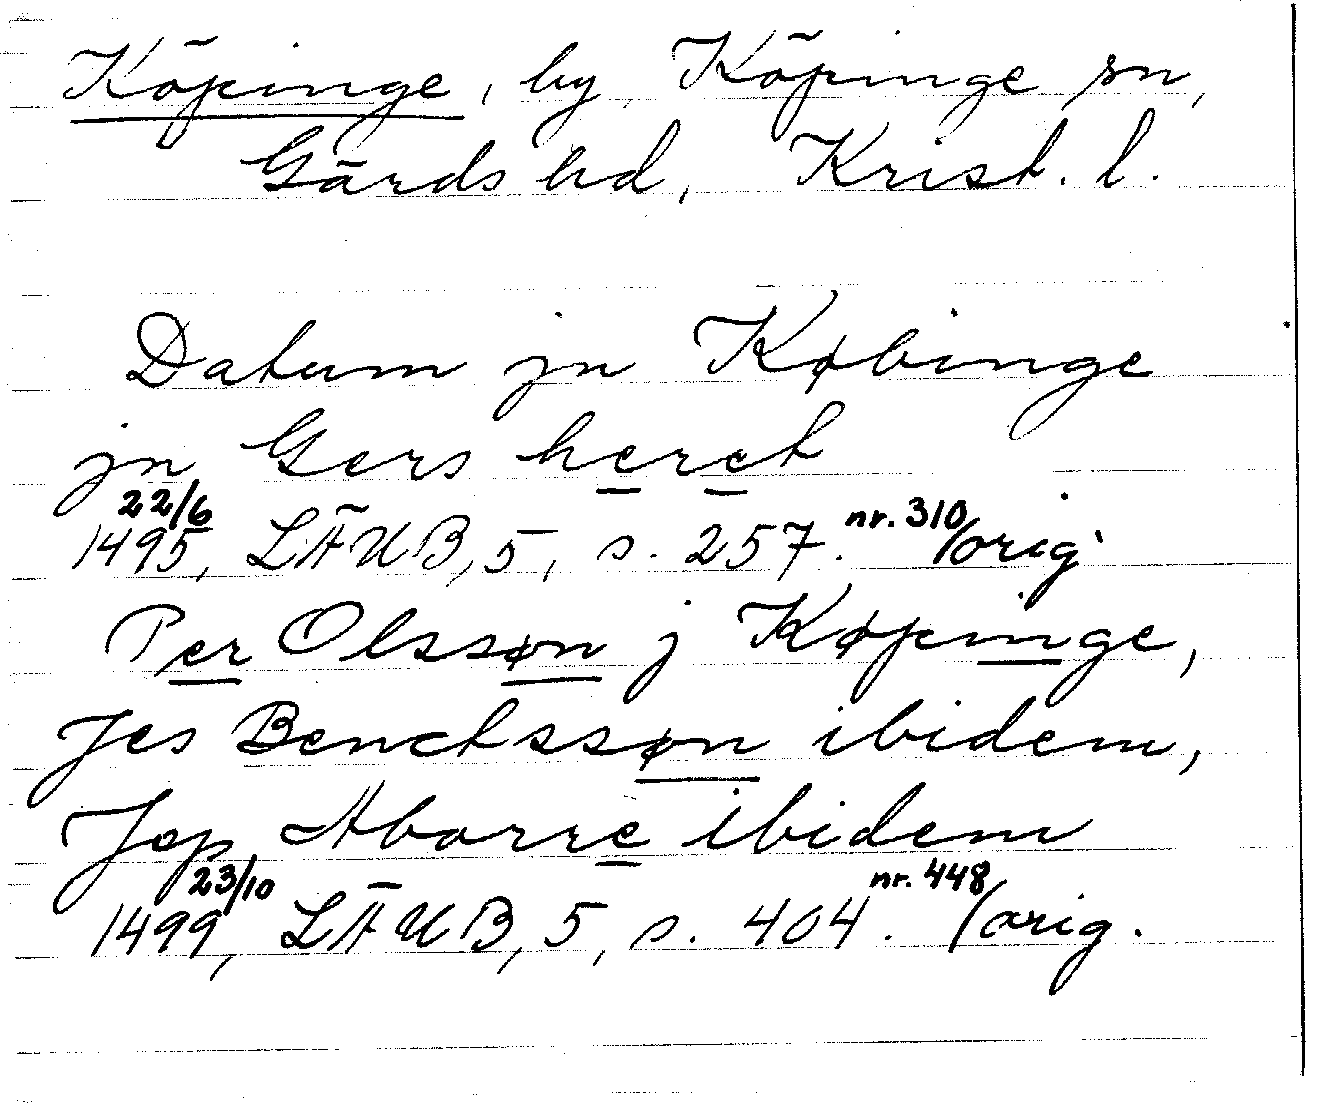 Köpinge, by, Köpinge sn,
Gärds hd, Krist. l.
Datum jn Købinge
jn Gers heret
22/6 nr. 310
1495, LÄUB, 5, s. 257. /orig
Per Olssøn j Køpinge,
Jes Benctssøn ibidem,
Jep Aborre ibidem
23/10 nr. 448
1499, LÄUB, 5, s. 404. /orig.